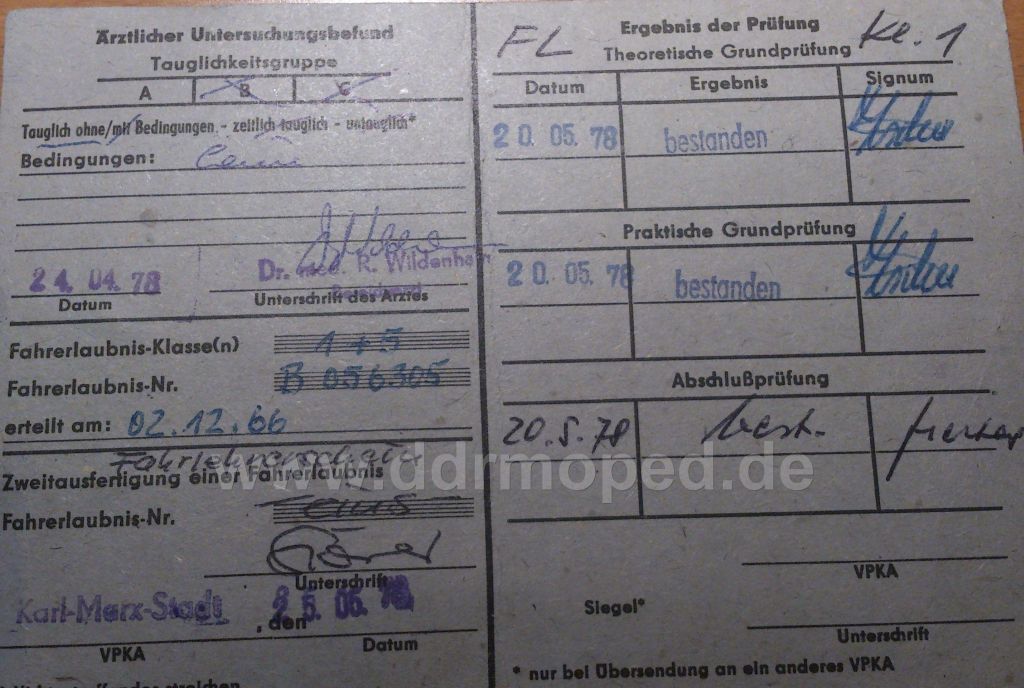 Ärztlicher Untersuchungsbefund
Tauglichkeitsgruppe
A B C
Tauglich ohne/mit Bedingungen - zeitlich tauglich - untauglich*
Bedingungen:
24. 04. 78 Dr. med. R. Wildenhain
Datum Unterschrift des Arztes
Fahrerlaubnis-Klasse(n) 1+5
Fahrerlaubnis-Nr. B 056305
erteilt am: 02.12.66
Fahrlehrerschein
Zweitausfertigung einer Fahrerlaubnis
Fahrerlaubnis-Nr.
Unterschrift
Karl-Marx-Stadt, den 25. 05. 78
VPKA Datum
FL Ergebnis der Prüfung Kl. 1
Theoretische Grundprüfung
Datum Ergebnis Signum
20. 05. 78 bestanden
Praktische Grundprüfung
20. 05. 78 bestanden
Abschlußprüfung
20. 5. 78 best.
VPKA
Siegel*
Unterschrift
* nur bei Übersendung an ein anderes VPKA
www.ddrmoped.de